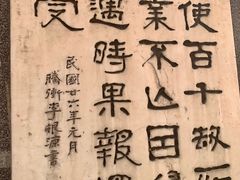 使百千劫所
業不亡因緣
遇時果報還
受
民國廿六年元月
騰衝李根源書